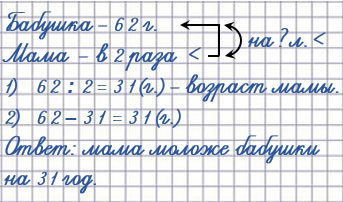 Бабушка – 62 г.
Мама – в 2 раза < на ? л. <
1) 62 : 2 = 31 (г.) – возраст мамы.
2) 62 – 31 = 31 (г.)
Ответ: мама моложе бабушки
на 31 год.